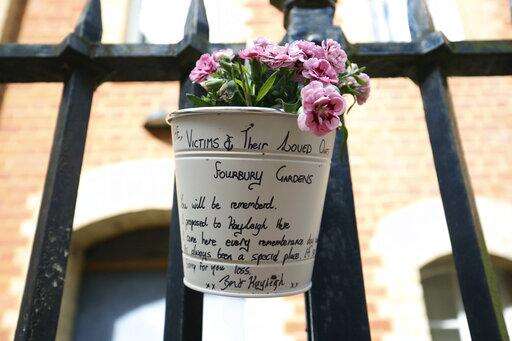 VICTIMS & Their LOVED
SOURBURY GARDENS
You will be rememberd.
proposed to Kayleigh Here
came here every rememberance
always been a special place.
Sorry for you loss.
xx Bret Kayleigh xx